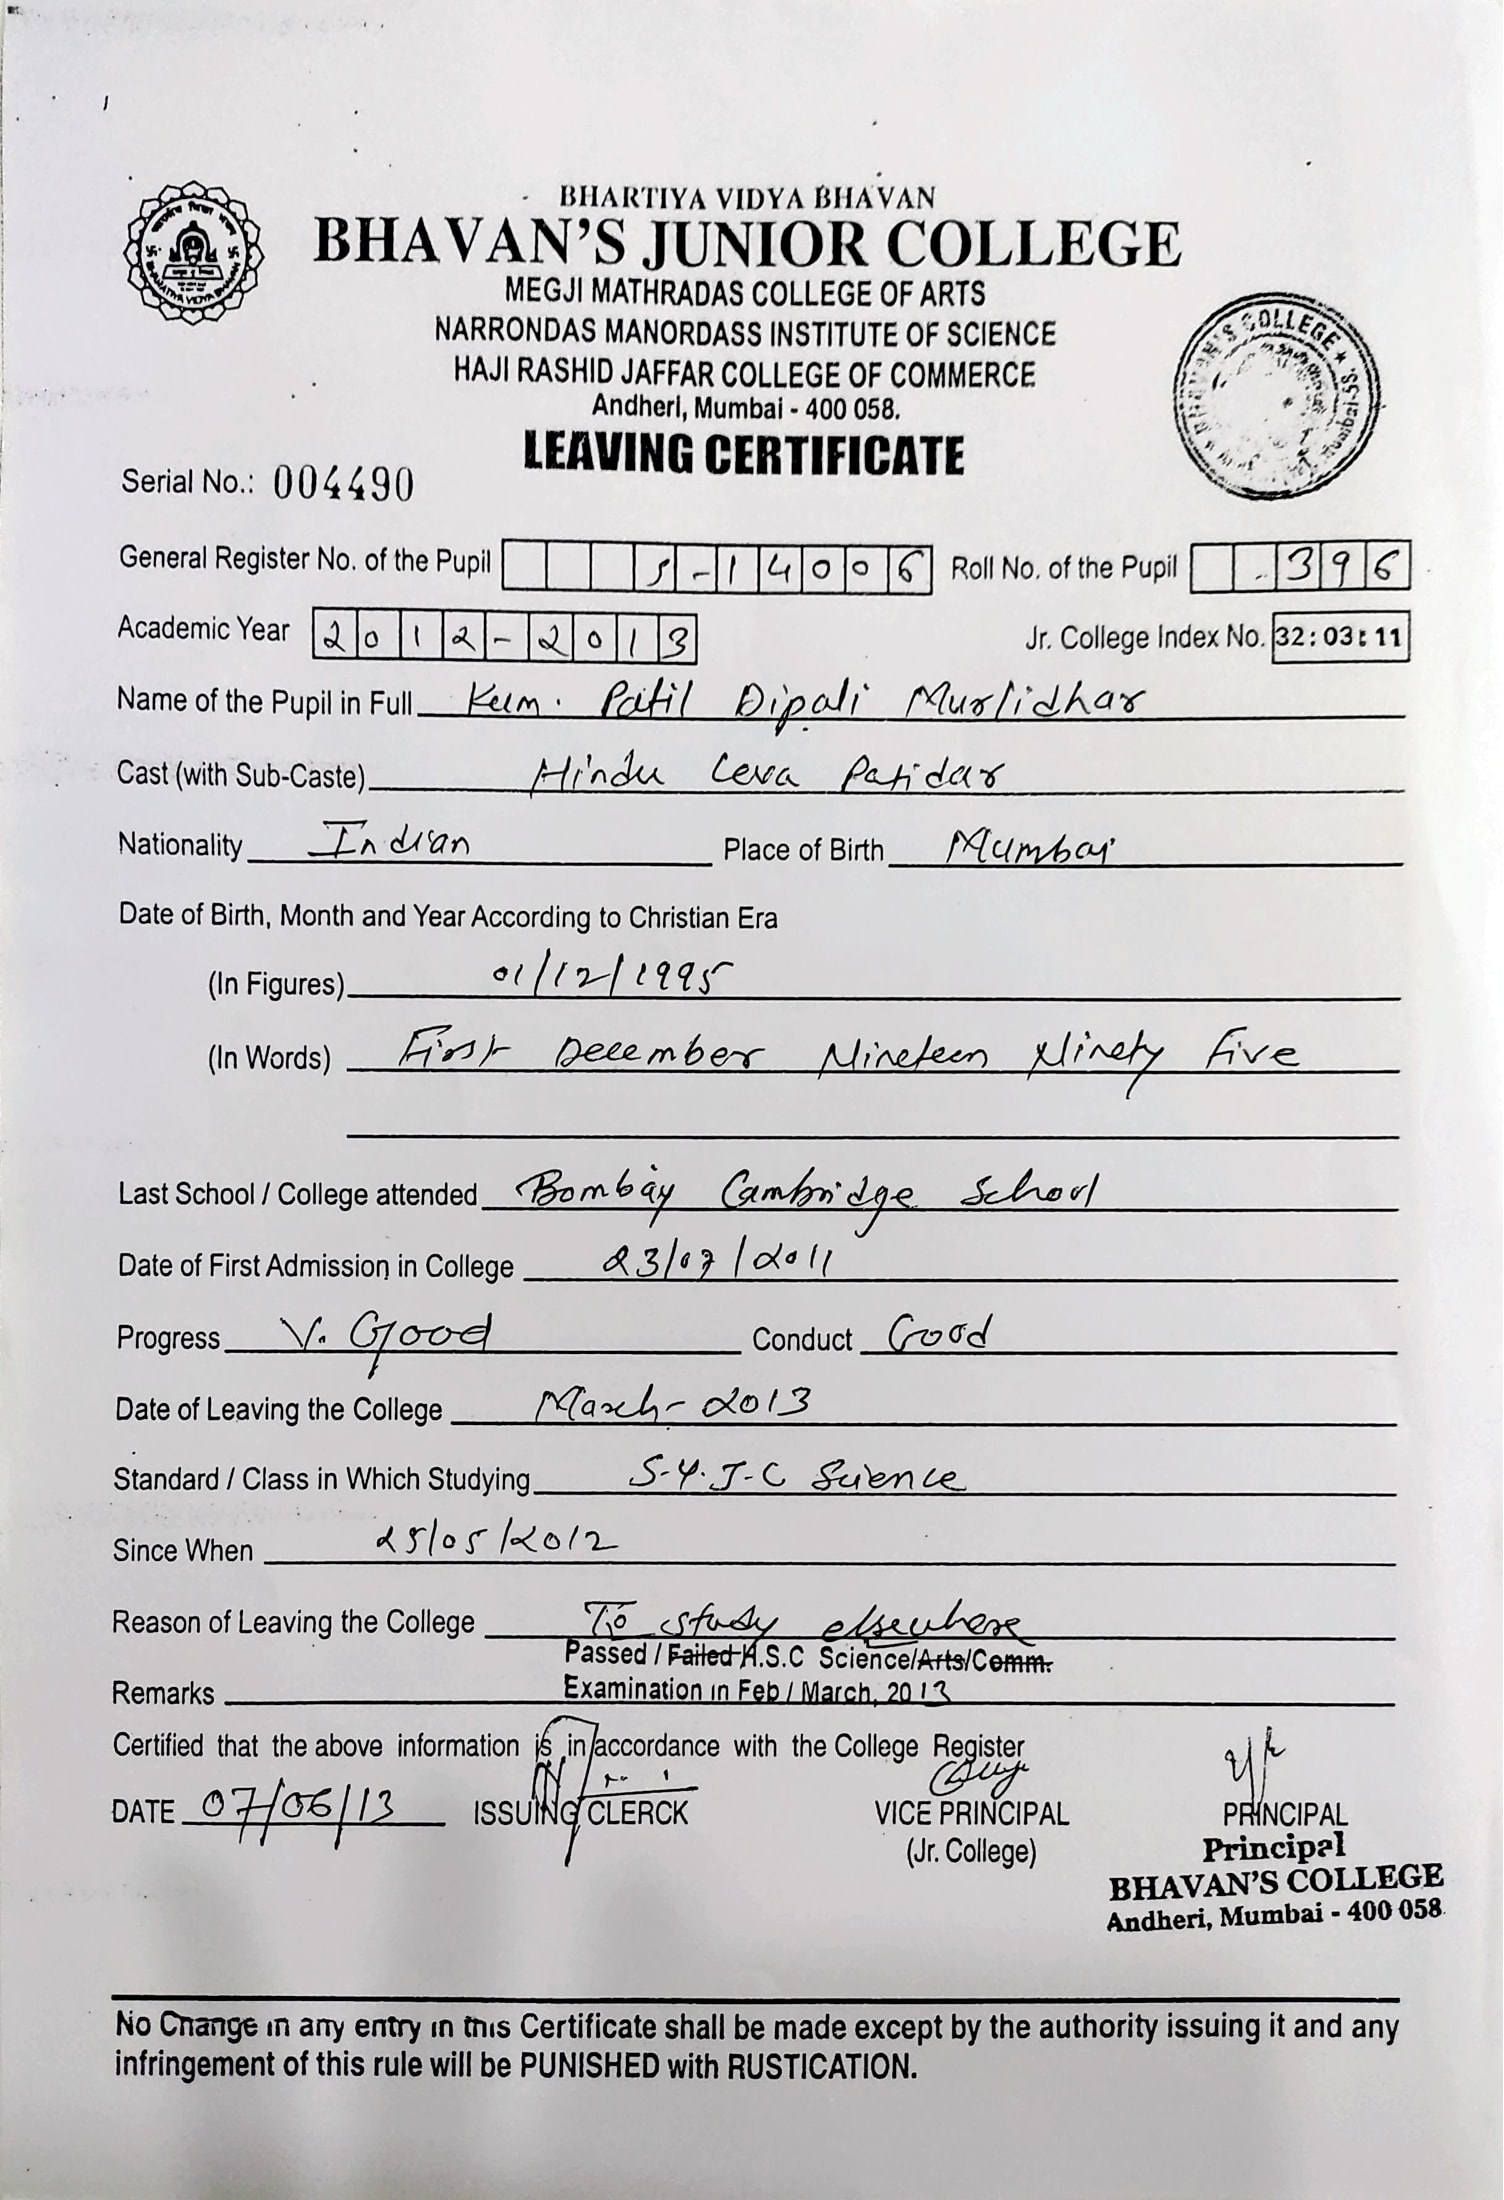 BHARTIYA VIDYA BHAVAN
BHAVAN'S JUNIOR COLLEGE
MEGJI MATHRADAS COLLEGE OF ARTS
NARRONDAS MANORDASS INSTITUTE OF SCIENCE
HAJI RASHID JAFFAR COLLEGE OF COMMERCE
Andheri, Mumbai - 400 058.
LEAVING CERTIFICATE
BHAVAN'S COLLEGE
Serial No.: 004490
General Register No. of the Pupil S-14006 Roll No. of the Pupil 396
Academic Year 2012-2013 Jr. College Index No. 32:03:11
Name of the Pupil in Full Kum. Patil Dipali Murlidhar
Cast (with Sub-Caste) Hindu Leva Patidar
Nationality Indian Place of Birth Mumbai
Date of Birth, Month and Year According to Christian Era
(In Figures) 01/12/1995
(In Words) First December Nineteen Ninety Five
Last School / College attended Bombay Cambridge School
Date of First Admission in College 23/07/2011
Progress V. Good Conduct Good
Date of Leaving the College March-2013
Standard / Class in Which Studying S.Y.J.C Science
Since When 25/05/2012
Reason of Leaving the College To study elsewhere
Passed / Failed H.S.C Science/Arts/Comm.
Remarks Examination in Feb / March, 2013
Certified that the above information is in accordance with the College Register
DATE 07/06/13 ISSUING CLERCK VICE PRINCIPAL PRINCIPAL
(Jr. College) Principal
BHAVAN'S COLLEGE
Andheri, Mumbai - 400 058.
No Change in any entry in this Certificate shall be made except by the authority issuing it and any
infringement of this rule will be PUNISHED with RUSTICATION.